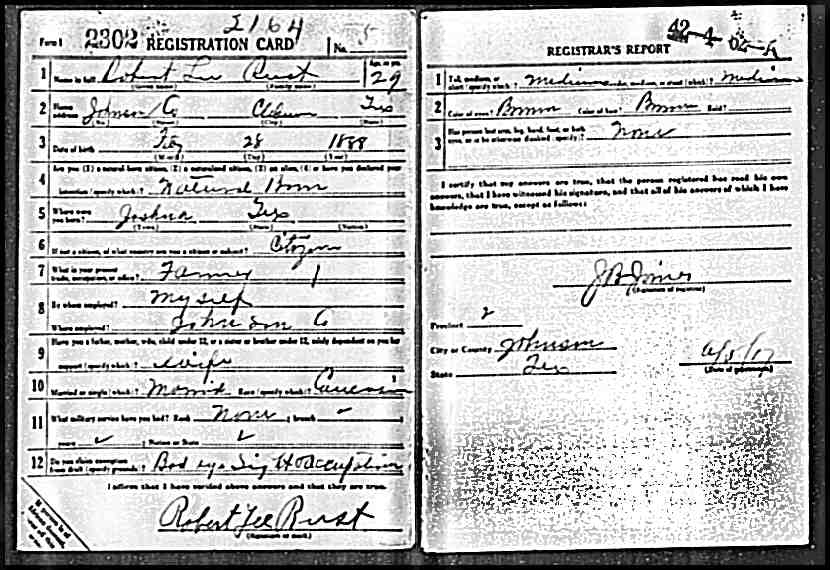 2164
Form 1 2302 REGISTRATION CARD No. 5
1 Name in full Robert Lee Rust Age, in yrs. 29
(Given name) (Family name)
2 Home address Johnson Co Cleburne Tex
(No.) (Street) (City) (State)
3 Date of birth Feb 28 1888
(Month) (Day) (Year)
4 Are you (1) a natural-born citizen, (2) a naturalized citizen, (3) an alien, (4) or have you declared your
intention (specify which)? Natural Born
5 Where were you born? Joshua Tex
(Town) (State) (Nation)
6 If not a citizen, of what country are you a citizen or subject? Citizen
7 What is your present trade, occupation, or office? Farmer 1
8 By whom employed? My self
Where employed? Johnson Co
9 Have you a father, mother, wife, child under 12, or a sister or brother under 12, solely dependent on you for
support (specify which)? Wife
10 Married or single (which)? Married Race (specify which)? Caucasian
11 What military service have you had? Rank None ; branch
years ; Nation or State
12 Do you claim exemption from draft (specify grounds)? Bad eye Sight Occupation
I affirm that I have verified above answers and that they are true.
Robert Lee Rust
(Signature or mark)
42-4-62-A
REGISTRAR'S REPORT
1 Tall, medium, or short (specify which)? Medium Slender, medium, or stout (which)? Medium
2 Color of eyes? Brown Color of hair? Brown Bald?
3 Has person lost arm, leg, hand, foot, or both eyes, or is he otherwise disabled (specify)? None
I certify that my answers are true, that the person registered has read his own
answers, that I have witnessed his signature, and that all of his answers of which I have
knowledge are true, except as follows:
(Signature of registrar)
Precinct 2
City or County Johnson
State Tex 6/5/17
(Date of registration)